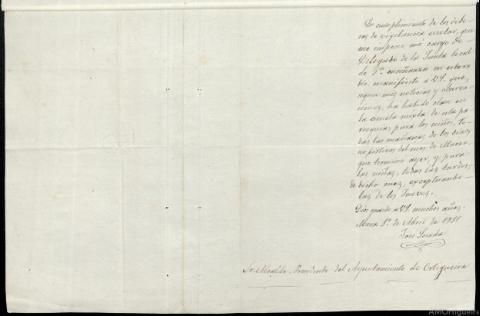 En cumplimiento de los debe-
res de vigilancia escolar, que
me impone mi cargo de
Delegado de la Junta local
de 1ª enseñanza en esta
manifiesto a V.S. que,
según mis noticias y observa-
ciones, ha habido clase en
la escuela mixta de esta pa-
rroquia para los niños, to-
das las mañanas de los días
no festivos del mes de Marzo
que terminó ayer, y para
las niñas, todas las tardes,
de dicho mes, exceptuando
las de los Jueves.
Dios guarde a V.S. muchos años.
1º de Abril de
José
Sr. Alcalde Presidente del Ayuntamiento de Ortigueira
AMOrtigueira